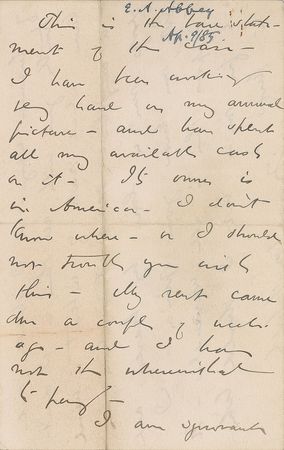 E. A. Abbey
Ap. 9/85
This is the bare state-
ment of the case -
I have been working
very hard on my annual
picture - and have spent
all my available cash
on it - Its owner is
in America - I don't
know where - or I should
not trouble you with
this - My rent came
due a couple of weeks
ago - and I have
not the wherewithal
to pay -
I am ignorant